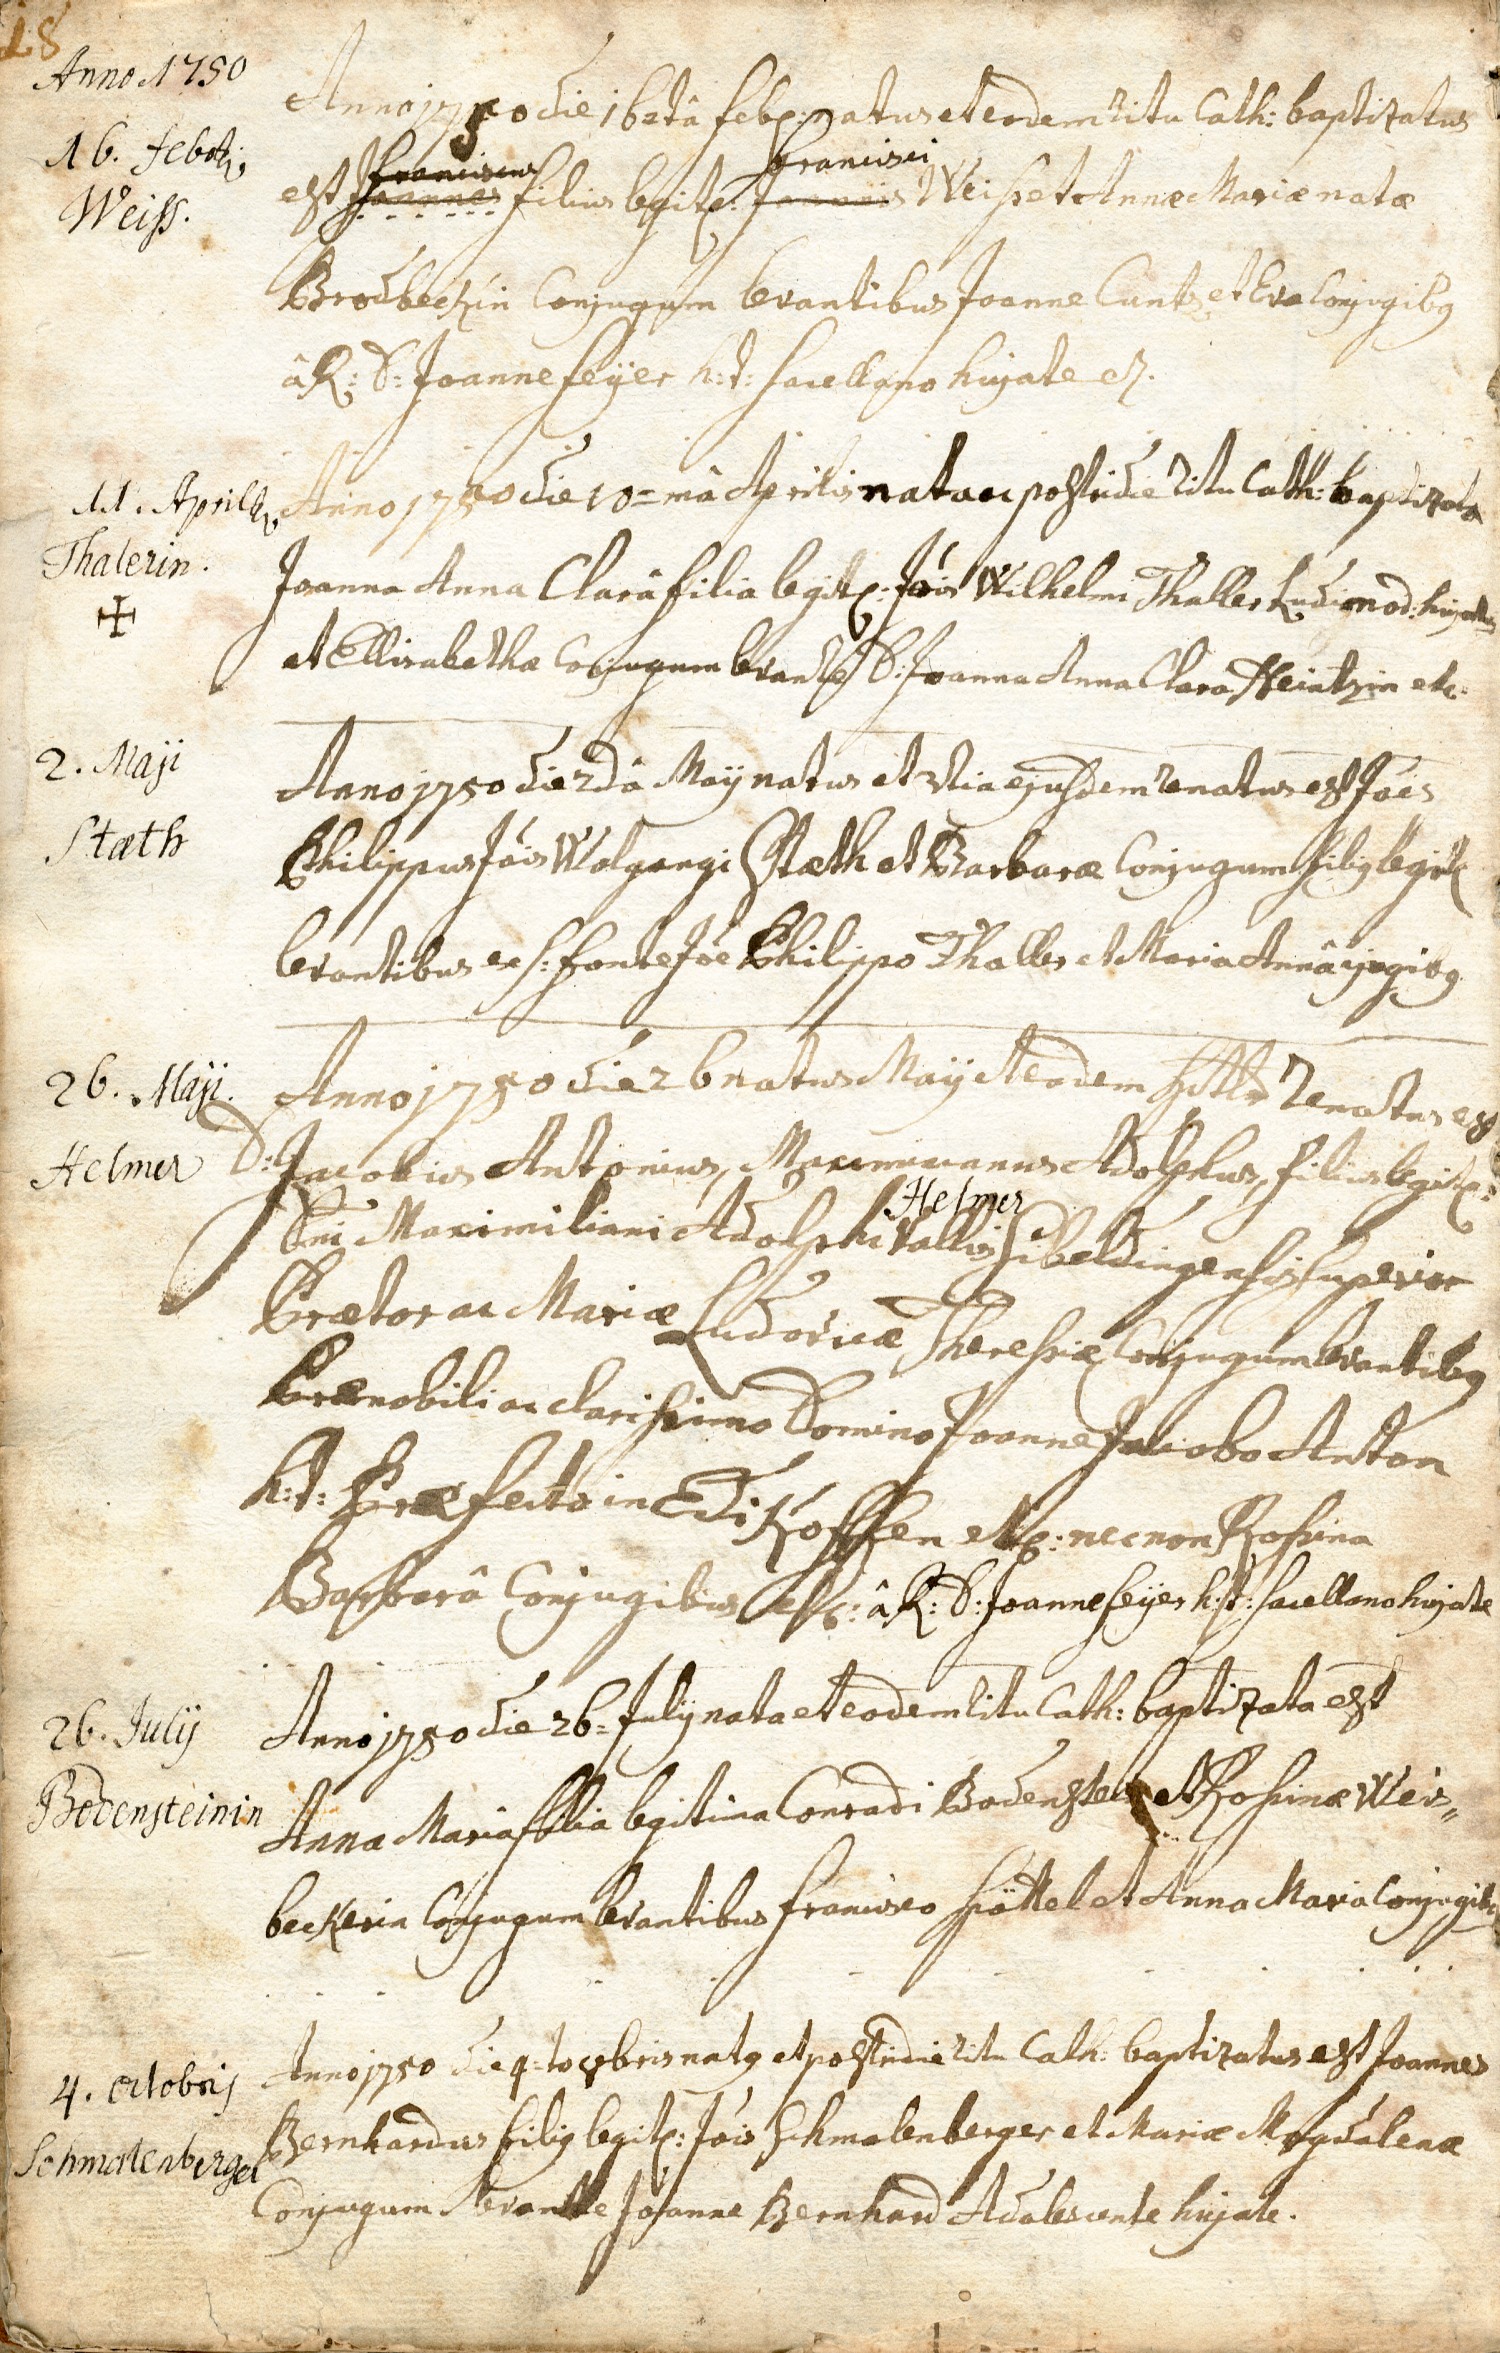 18
Anno 1750
16. febr.
Weiss.
Anno 1750 die 16=tâ feb: natus et eodem ritu Cath: baptizatus
Franciscus Francisci
est Joannes filius legit: Joannis Weiss et Annæ Mariæ natæ
Brodbeckin Conjugum levantibus Joanne Cuntz et Eva Conjugibg
â R: D: Joanne feijer h: t: sacellano hujate
11. Aprilis
Thalerin.
✠
Anno 1750 die 10=mâ Aprilis nata ac postridie ritu Cath: baptizata
Joanna Anna Clara filia legit: Jois Wilhelmi Thaller Ludimod: hujatis
et Ellisabethæ Conjugum levante D: Joanna Anna Clara Heintzin etc:
2. Maji
Stæth
Anno 1750 die 2dâ Maij natus et 3tia ejusdem renatus est Joes
Philippus Jois Wolgangi Stæth et Barbaræ Conjugum filig legit:
levantibus e s: fonte Joe Philippo Thaller et Maria Annâ cjugibg
26. Maji.
Helmer
Anno 1750 die 26 natus Maij et eodem renatus est
D: Jacobus Antonius, Maximilianus Adolphus, filius legit:
Helmer
Dni Maximiliani Adolphi Vallis Sibeldingensis superior
Prætor ac Mariæ Ludovicæ Theresiæ Conjugum levantibg
Prænobili ac clarissimo Domino Joanne Jacobo Anton
h: t: Præfecto in Edikoffen etc: necnon Rossina
Barbarâ Conjugibus etc: â R: D: Joanne feijer h: t: sacellano hujate
26. Julij
Bodensteinin
Anno 1750 die 26= Julij nata et eodem ritu Cath: baptizata est
Anna Maria filia legitima Conradi Bodenstein et Rossinæ Weis„
beckerin Conjugum levantibus francisco Höttel et Anna Maria Conjugibg
4. octobris
Schmalenberger
Anno 1750 die 4=to 8bris natg et postridie ritu Cath: baptizatus est Joannes
Bernhardus filig legit: Jois Schmalenberger et Mariæ Magdalenæ
Conjugum levante Joanne Bernhard Adolescente hujate.